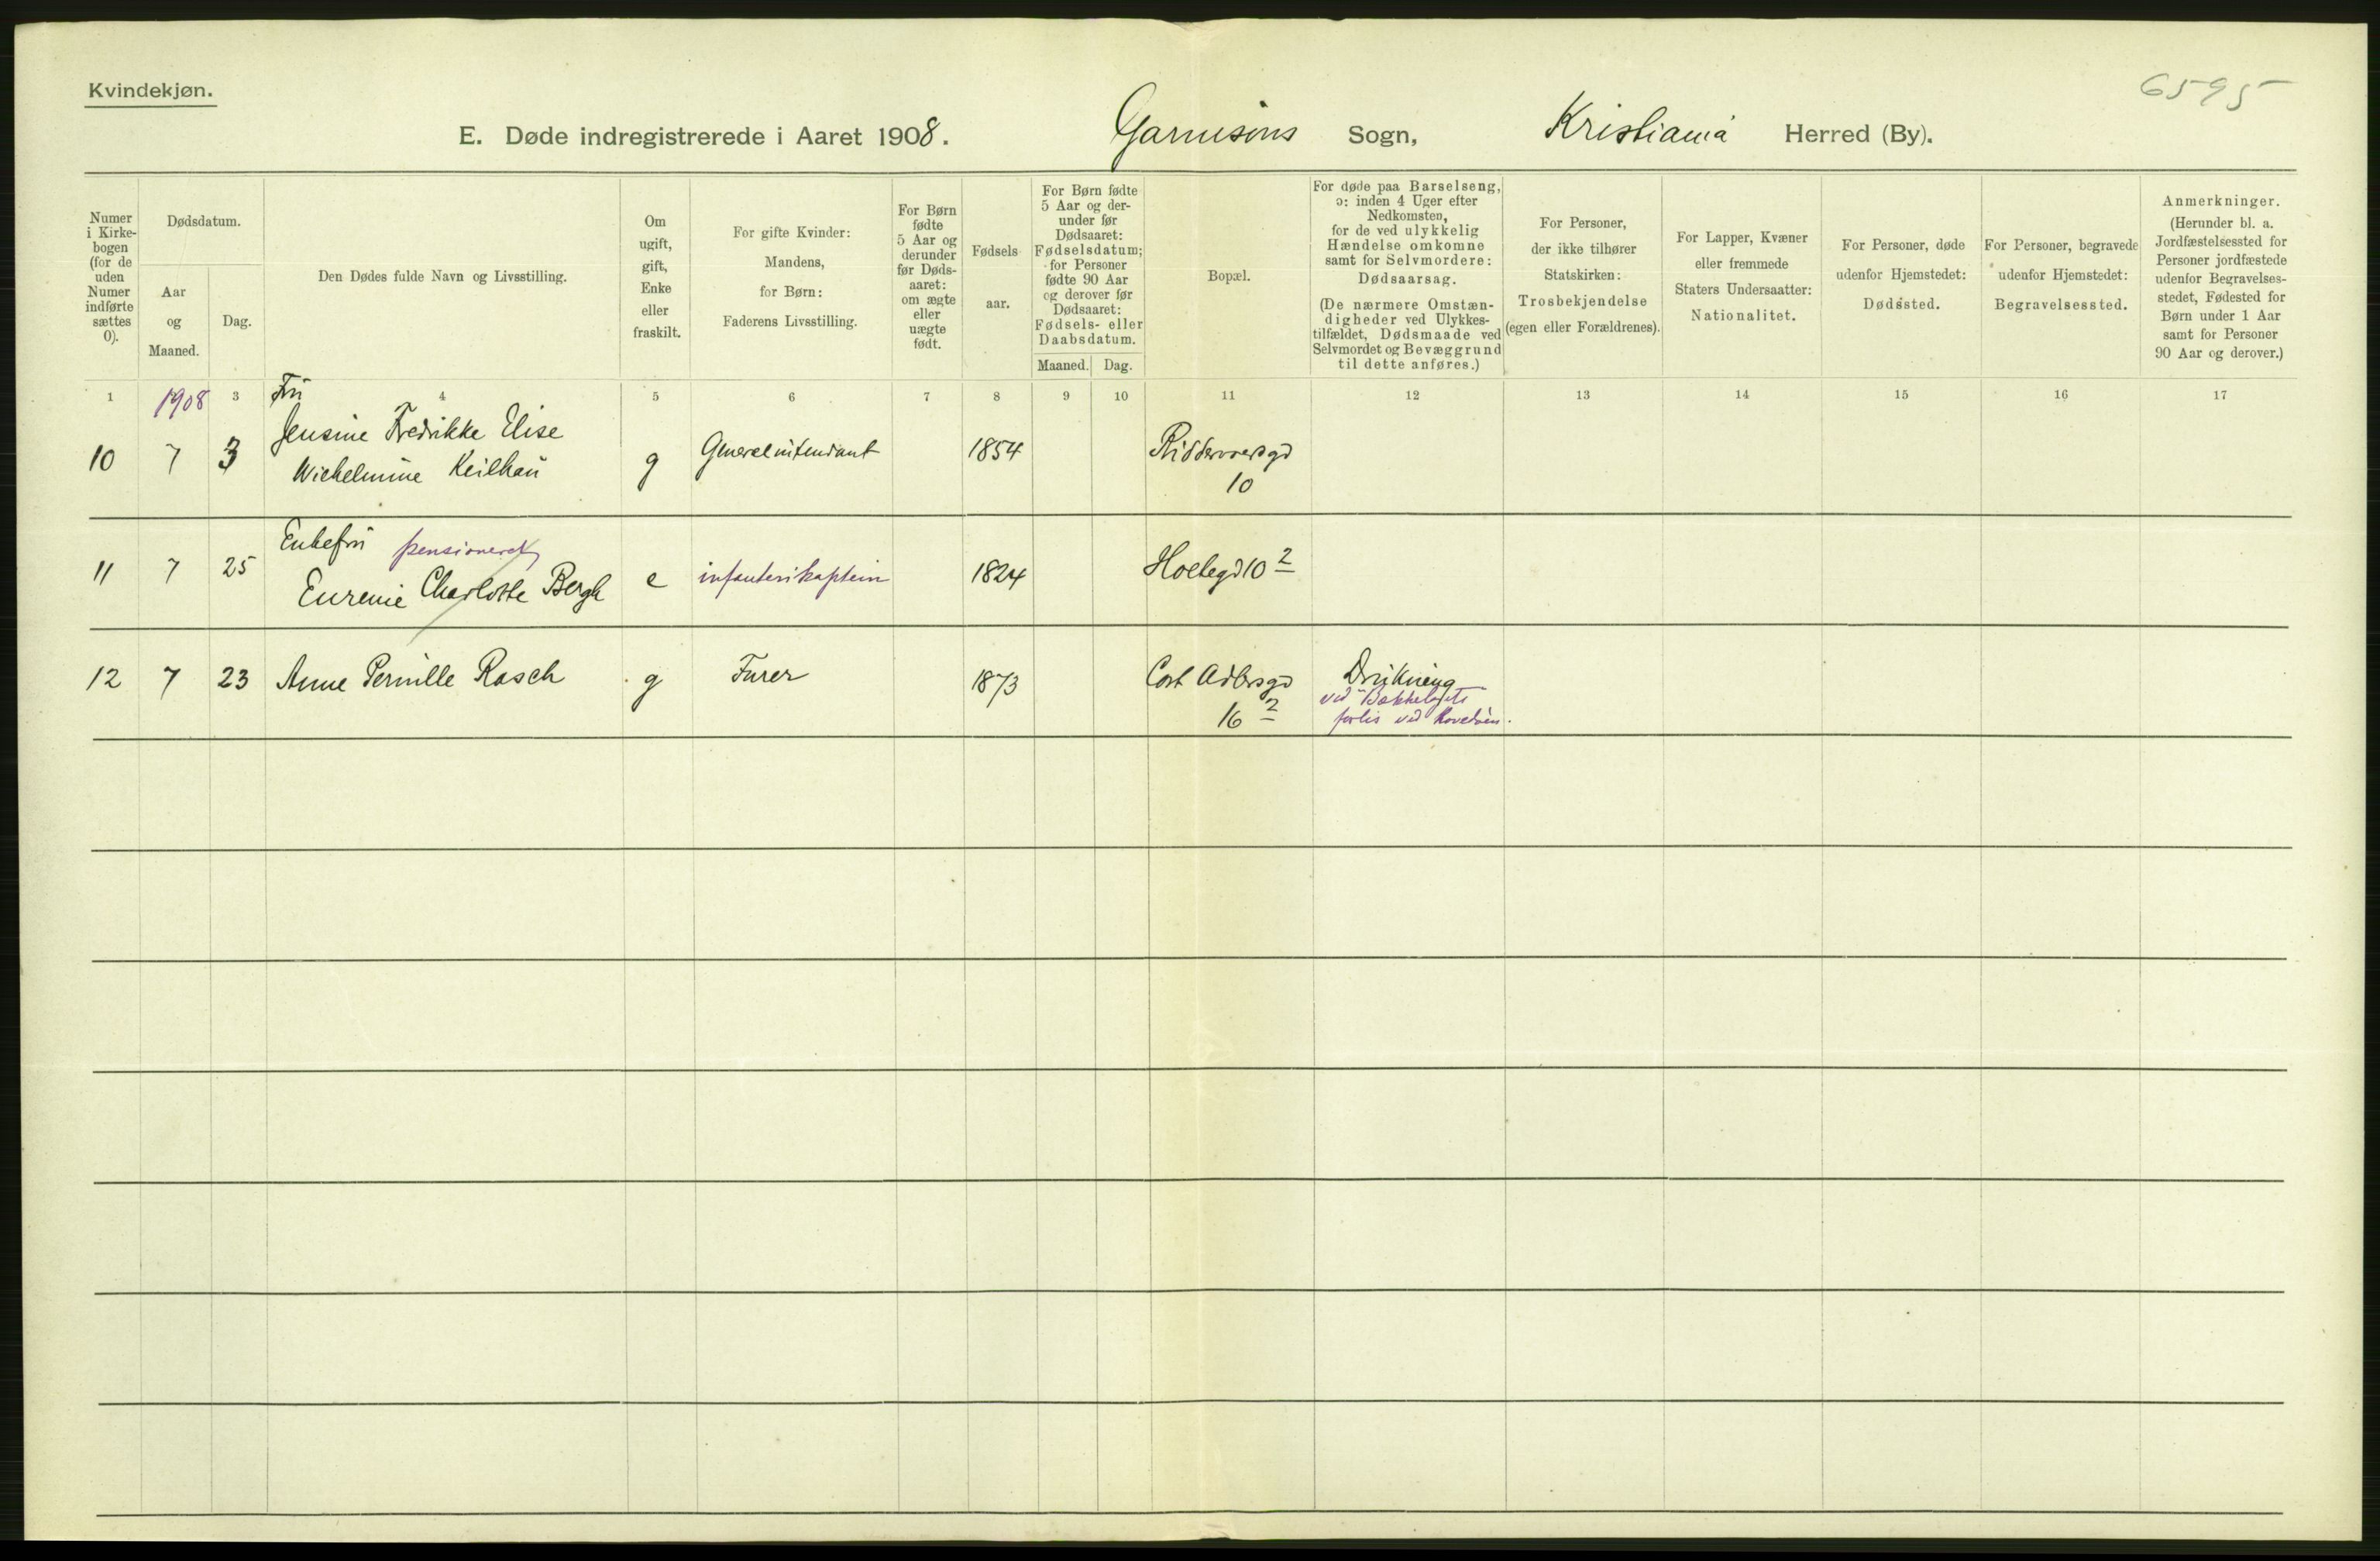 Kvindekjøn.
6595
E. Døde indregistrerede i Aaret 1908. Garnisons Sogn, Kristiania Herred (By).
Numer i Kirkebogen (for de uden Numer indførte sættes 0).
Dødsdatum.
Aar og Maaned.
Dag.
Den Dødes fulde Navn og Livsstilling.
Om ugift, gift, Enke eller fraskilt.
For gifte Kvinder: Mandens, for Børn: Faderens Livsstilling.
For Børn fødte 5 Aar og derunder før Dødsaaret: om ægte eller uægte født.
Fødselsaar.
For Børn fødte 5 Aar og derunder før Dødsaaret: Fødselsdatum; for Personer fødte 90 Aar og derover før Dødsaaret: Fødsels- eller Daabsdatum.
Maaned. Dag.
Bopæl.
For døde paa Barselseng, ɔ: inden 4 Uger efter Nedkomsten, for de ved ulykkelig Hændelse omkomne samt for Selvmordere: Dødsaarsag. (De nærmere Omstændigheder ved Ulykkestilfældet, Dødsmaade ved Selvmordet og Bevæggrund til dette anføres.)
For Personer, der ikke tilhører Statskirken: Trosbekjendelse (egen eller Forældrenes).
For Lapper, Kvæner eller fremmede Staters Undersaatter: Nationalitet.
For Personer, døde udenfor Hjemstedet: Dødssted.
For Personer, begravede udenfor Hjemstedet: Begravelsessted.
Anmerkninger. (Herunder bl. a. Jordfæstelsessted for Personer jordfæstede udenfor Begravelsesstedet, Fødested for Børn under 1 Aar samt for Personer 90 Aar og derover.)
1 1908 3 4 5 6 7 8 9 10 11 12 13 14 15 16 17
Fru
10 7 3 Jensine Fredrikke Elise Wilhelmine Keilhau g Generalintendant 1854 Riddervoldsgd 10
Enkefru pensioneret
11 7 25 Eugenie Charlotte Bergh e infanterikaptein 1824 Holtegd 10 2
12 7 23 Anne Pernille Rasch g Furer 1873 Cort Adlersgd 16 2 Drukning
ved "Bækkelagets"
forlis ved Hovedøen.